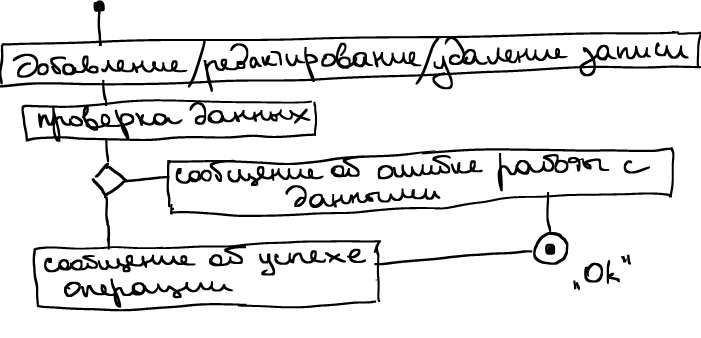 добавление/редактирование/удаление записи
проверка данных
сообщение об ошибке работы с
данными
сообщение об успехе
операции
„Ok"